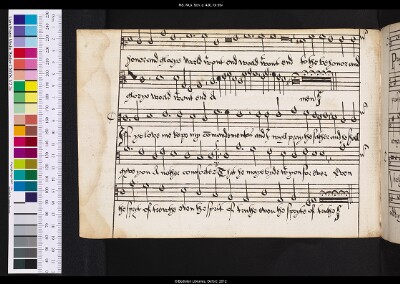 honor and glorye world wtout end world wtout end to the be honor and
glorye world wtout end A men
If ye love me kepe my and I wyll pray the father and he shall
geve you A nother comforter That he maye byde wt you for ever Even
the sprit of trouthe even the sprit of truthe even the spryte of truthe
© Bodleian Libraries, Oxford, 2012